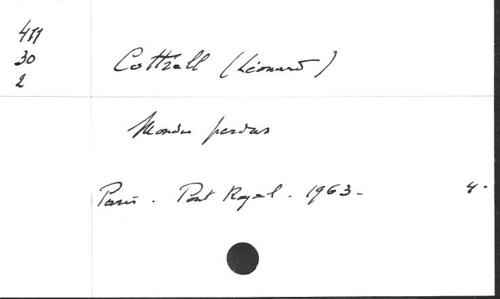 411
30
2
Cottrell (Léonard)
Mondes perdus
Paris. Pont Royal. 1963-
4-